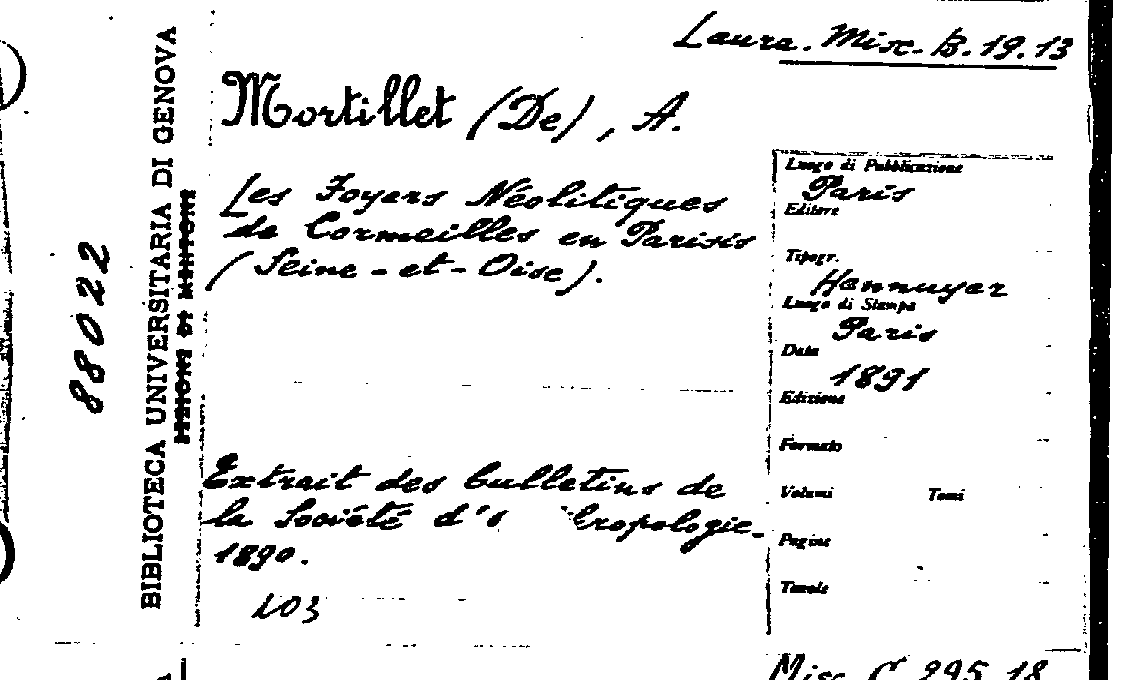 Laura. Misc. B. 19. 13
Mortillet (De), A.
Les Foyers Néolitiques
de Cormeilles en Parisis
(Seine-et-Oise).
Extrait des bulletins de
la Société
1890.
103
Luogo di Pubblicazione
Paris
Editore
Tipogr.
Hennuyer
Luogo di Stampa
Paris
Data
1891
Edizione
Formato
Volumi Tomi
Pagine
Tavole
BIBLIOTECA UNIVERSITARIA DI GENOVA
88022
Misc. C. 295. 18